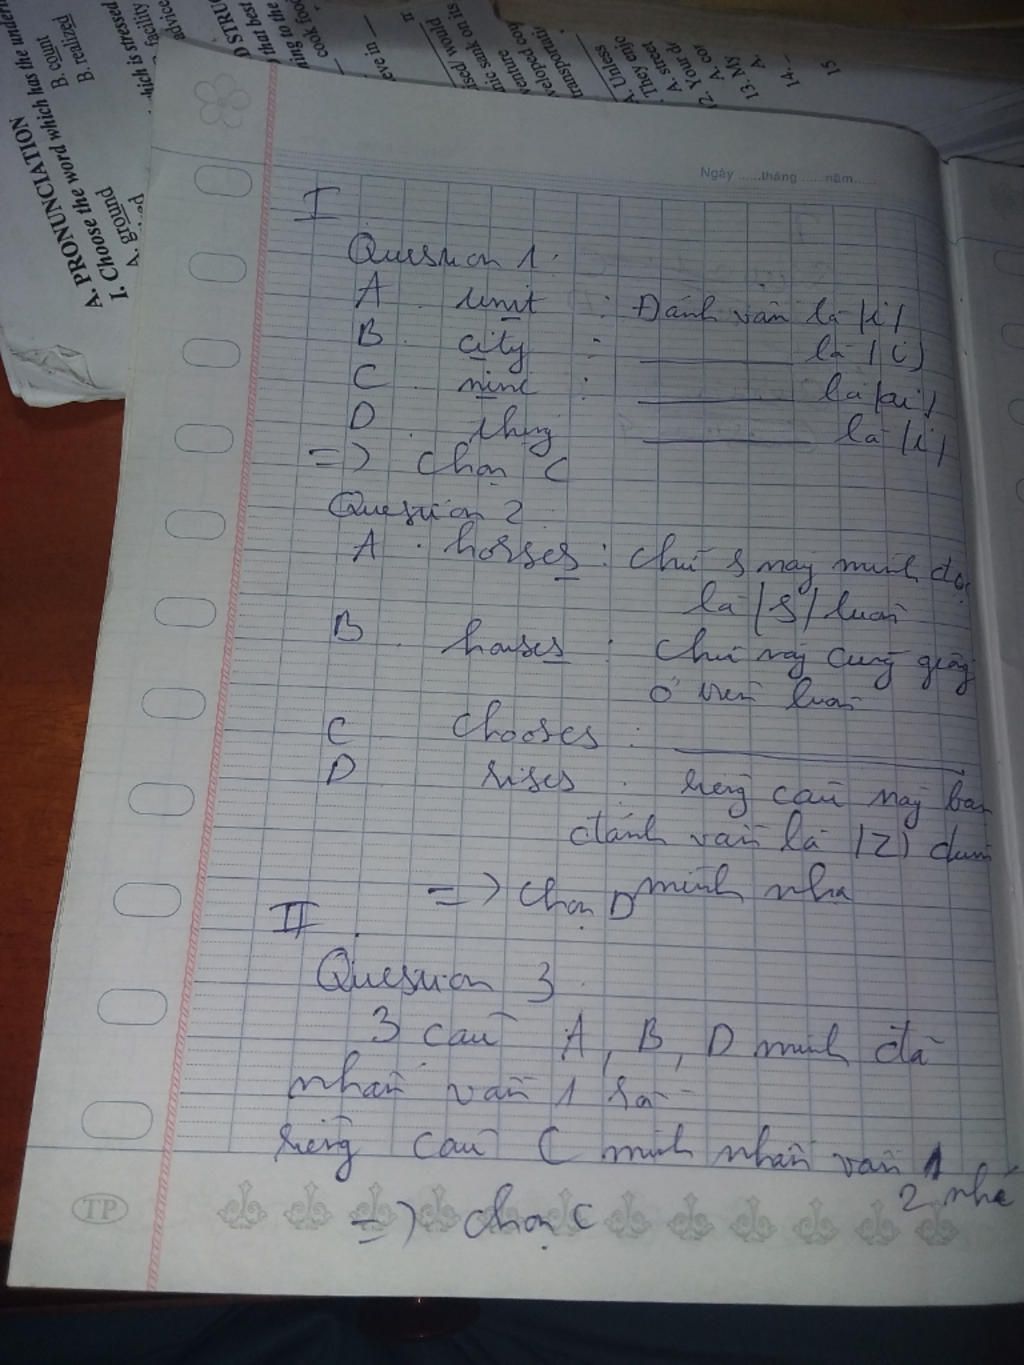 A. PRONUNCIATION
I. Choose the word which has the under
A. ground
B. count
B. realized
which is stressed
facility
advice
D STRU
that best
ning to the
cook foo
eve in
ised would
mic sunk on its
venture
veloped cou
transportati
A. Unless
They enjo
A. street
2. Your de
A. cor
13. My
A.
14.
15
Ngày ......tháng ......năm......
I
Question 1:
A. unit : Đánh vần là /i/
B. city : là /i/
C. nine : là /ai/
D. thing là /i/
=> chọn C
Question 2
A. horses : chữ s này mình đọc
là /s/ luôn
B. houses : chữ này cũng giống
ở trên luôn
C chooses :
D rises : riêng câu này bạn
đánh vần là /z/ dùm
mình nha
=> chọn D
II.
Question 3.
3 câu A, B, D mình đã
nhấn vần 1 rồi
riêng câu C mình nhấn vần
2 nhé
=> chọn C
TP